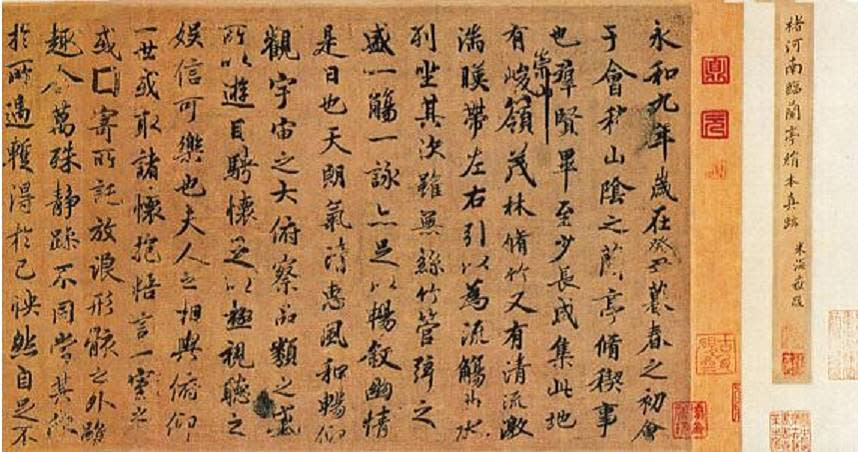 褚河南臨蘭亭絹本真跡 米海嶽跋
永和九年歲在癸丑暮春之初會
于會稽山陰之蘭亭脩稧事
也羣賢畢至少長咸集此地
有崇山峻嶺茂林脩竹又有清流激
湍暎帶左右引以為流觴曲水
列坐其次雖無絲竹管弦之
盛一觴一詠亦足以暢敘幽情
是日也天朗氣清惠風和暢仰
觀宇宙之大俯察品類之盛
所以遊目騁懷足以極視聽之
娛信可樂也夫人之相與俯仰
一世或取諸懷抱悟言一室之
或寄所託放浪形骸之外雖
趣舍萬殊靜躁不同當其欣
於所遇蹔得於己怏然自足不